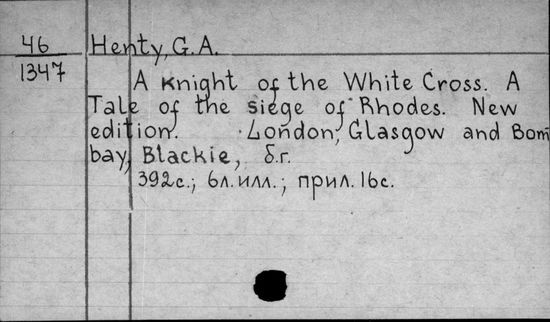 46 Henty, G.A.
1347
A Knight of the White Cross. A
Tale of the siege of Rhodes. New
edition. London, Glasgow and Bom
bay, Blackie, б.г.
392с.; 6л. илл.; прил. 16с.